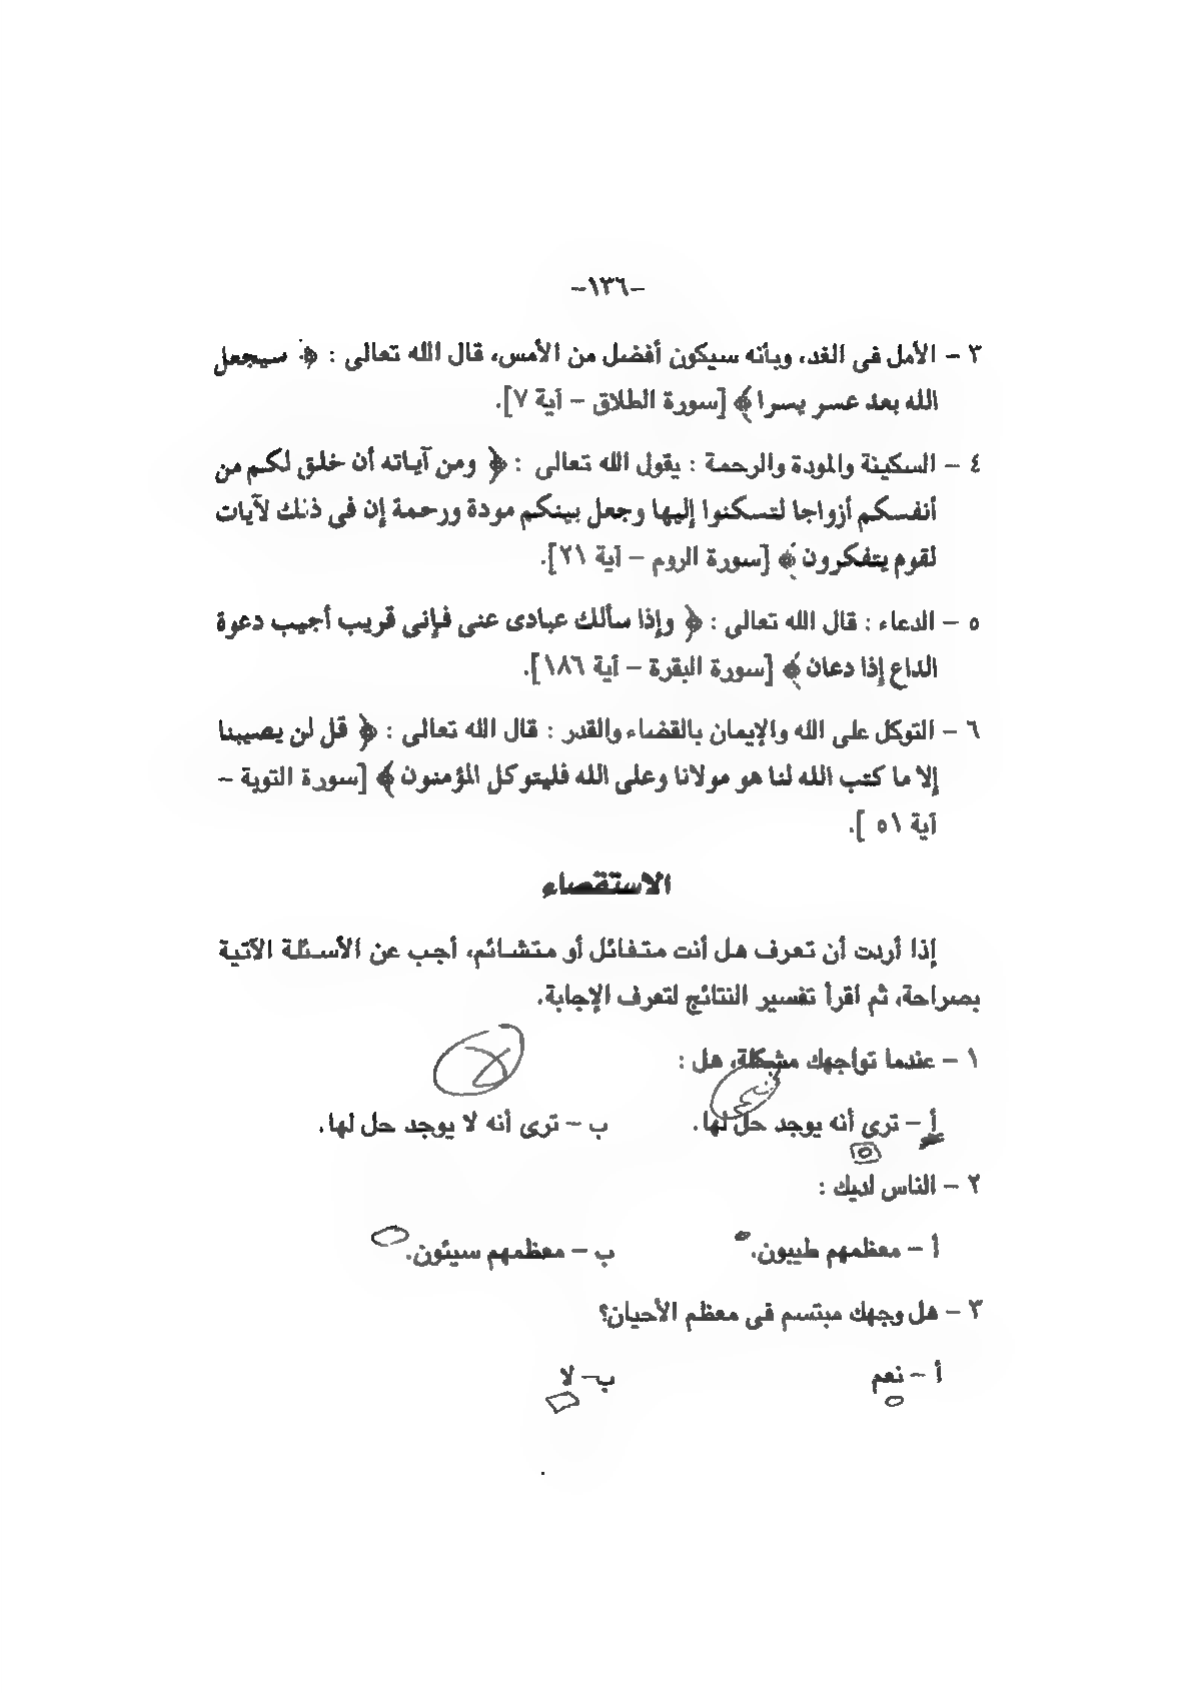 -١٣٦-
٣ - الأمل فى الغد، وبأنه سيكون أفضل من الأمس، قال الله تعالى : ﴿ سيجعل
الله بعد عسر يسرا ﴾ [سورة الطلاق - آية ٧].
٤ - السكينة والمودة والرحمة : يقول الله تعالى : ﴿ ومن آياته أن خلق لكم من
أنفسكم أزواجا لتسكنوا إليها وجعل بينكم مودة ورحمة إن فى ذلك لآيات
لقوم يتفكرون ﴾ [سورة الروم - آية ٢١].
٥ - الدعاء : قال الله تعالى : ﴿ وإذا سألك عبادى عنى فإنى قريب أجيب دعوة
الداع إذا دعان ﴾ [سورة البقرة - آية ١٨٦].
٦ - التوكل على الله والإيمان بالقضاء والقدر : قال الله تعالى : ﴿ قل لن يصيبنا
إلا ما كتب الله لنا هو مولانا وعلى الله فليتوكل المؤمنون ﴾ [سورة التوبة -
آية ٥١ ].
الاستقصاء
إذا أردت أن تعرف هل أنت متفائل أو متشائم، أجب عن الأسئلة الآتية
بصراحة، ثم اقرأ تفسير النتائج لتعرف الإجابة.
١ - عندما تواجهك مشكلة، هل :
أ - ترى أنه يوجد حل لها. ب - ترى أنه لا يوجد حل لها.
٢ - الناس لديك :
أ - معظمهم طيبون. ب - معظمهم سيئون.
٣ - هل وجهك مبتسم فى معظم الأحيان؟
أ - نعم ب- لا